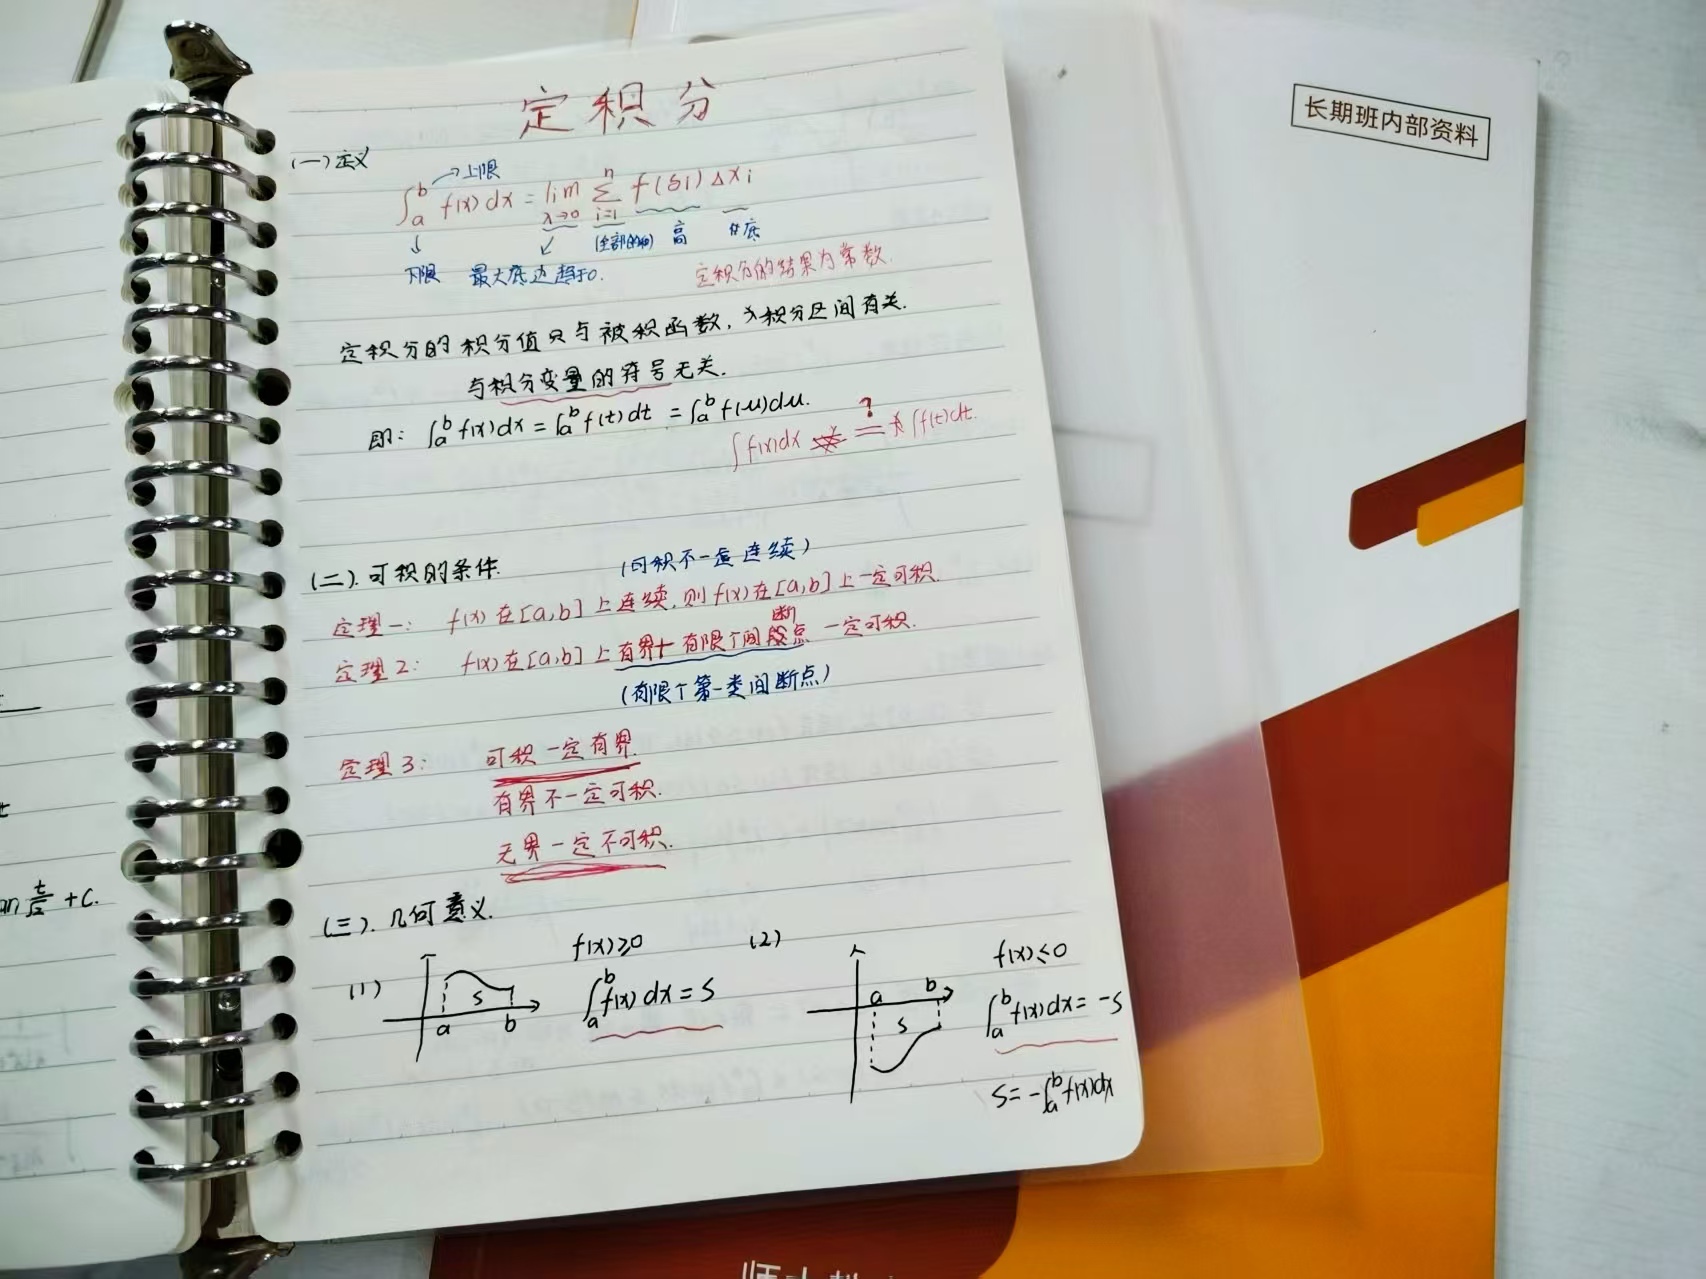 定积分
(一)定义
→上限
∫_a^b f(x)dx = lim_{λ→0} Σ_{i=1}^n f(ξi)Δxi
↓ ↙ (全部的和) 高 底
下限 最大底边趋于0. 定积分的结果为常数.
定积分的积分值只与被积函数,积分区间有关.
与积分变量的符号无关.
即: ∫_a^b f(x)dx = ∫_a^b f(t)dt = ∫_a^b f(u)du.
∫f(x)dx = ∫f(t)dt.
?
(二).可积的条件. (可积不一定连续)
定理一: f(x)在[a,b]上连续,则f(x)在[a,b]上一定可积.
定理2: f(x)在[a,b]上有界+有限个间断点一定可积.
(有限个第一类间断点)
定理3: 可积一定有界.
有界不一定可积.
无界一定不可积.
(三).几何意义.
(1) f(x)≥0 (2) f(x)≤0
S a b ∫_a^b f(x)dx = S
a b S ∫_a^b f(x)dx = -S
S = -∫_a^b f(x)dx
t
an +C.
长期班内部资料